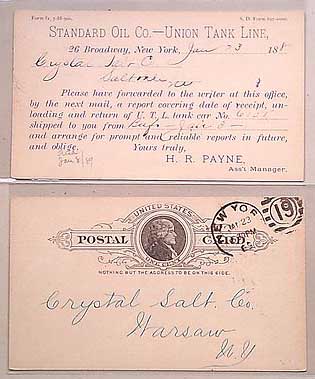 Form G, 7-88-500.
S. D. Form 627-1000.
STANDARD OIL CO.—UNION TANK LINE,
26 Broadway, New York, Jan 23 188
Crystal Salt Co
Saltvale
Please have forwarded to the writer at this office,
by the next mail, a report covering date of receipt, un-
loading and return of U. T. L. tank car No.
shipped to you from
and arrange for prompt and reliable reports in future,
and oblige, Yours truly,
Jan 8/89
H. R. PAYNE,
Ass't Manager.
UNITED STATES
POSTAL CARD.
ONE CENT
NOTHING BUT THE ADDRESS TO BE ON THIS SIDE.
NEW YOR
JAN 23
PM
19
Crystal Salt. Co.
Warsaw
N Y